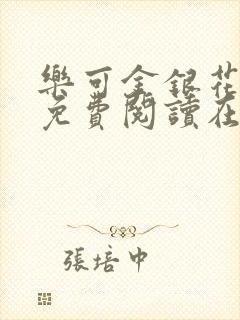 樂可金銀花
免費閱讀在
張培中